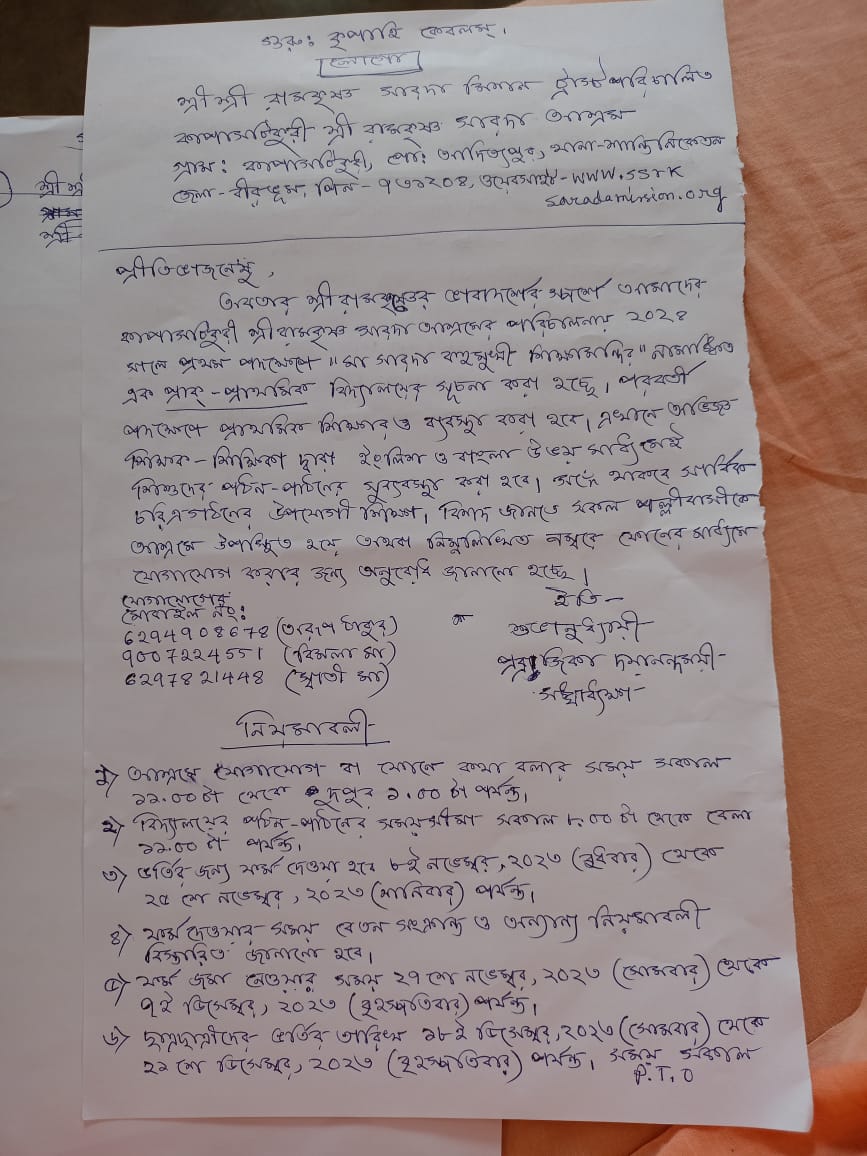 গুরু: কৃপাহি কেবলম্।
লোগো
শ্রীশ্রী রামকৃষ্ণ সারদা মিশন ট্রাস্ট পরিচালিত
কাপাসটিকুরী শ্রী রামকৃষ্ণ সারদা আশ্রম
গ্রাম: কাপাসটিকুরী, পো: আদিত্যপুর, থানা-শান্তিনিকেতন
জেলা - বীরভূম, পিন - ৭৩১২০৪, ওয়েবসাইট - www.ssrk
saradamission.org
শ্রী শ্রী
শ্রী
প্রীতিভাজনেষু,
অবতার শ্রীরামকৃষ্ণের ভাবাদর্শের স্পর্শে আমাদের
কাপাসটিকুরী শ্রীরামকৃষ্ণ সারদা আশ্রমের পরিচালনায় ২০২৪
সালে প্রথম পদক্ষেপে "মা সারদা বহুমুখী শিক্ষামন্দির" নামাঙ্কিত
এক প্রাক্-প্রাথমিক বিদ্যালয়ের সূচনা করা হচ্ছে। পরবর্তী
পদক্ষেপে প্রাথমিক শিক্ষার ও ব্যবস্থা করা হবে। এখানে অভিজ্ঞ
শিক্ষক-শিক্ষিকা দ্বারা ইংলিশ ও বাংলা উভয় মাধ্যমেই
শিশুদের পঠন-পাঠনের সুব্যবস্থা করা হবে। সঙ্গে থাকবে সার্বিক
চরিত্রগঠনের উপযোগী শিক্ষা। বিশদ জানতে সকল পল্লীবাসীকে
আশ্রমে উপস্থিত হয়ে অথবা নিম্নলিখিত নম্বরে ফোনের মাধ্যমে
যোগাযোগ করার জন্য অনুরোধ জানানো হচ্ছে।
যোগাযোগের
মোবাইল নং:
6294908678 (অরূপ ঠাকুর)
9007224551 (বিমলা মা)
6297821448 (স্বাতী মা)
ইতি -
শুভানুধ্যায়ী
প্রব্রাজিকা দয়ানন্দময়ী-
সঙ্ঘাধ্যক্ষা-
নিয়মাবলী
১) আশ্রমে যোগাযোগ বা ফোনে কথা বলার সময় সকাল
১১.০০ টা থেকে দুপুর ১.০০ টা পর্যন্ত।
২) বিদ্যালয়ের পঠন-পাঠনের সময়সীমা সকাল ৮.০০ টা থেকে বেলা
১১.০০ টা পর্যন্ত।
৩) ভর্তির জন্য ফর্ম দেওয়া হবে ৮ই নভেম্বর, ২০২৩ (বুধবার) থেকে
২৫ শে নভেম্বর, ২০২৩ (শনিবার) পর্যন্ত।
৪) ফর্ম দেওয়ার সময় বেতন সংক্রান্ত ও অন্যান্য নিয়মাবলী
বিস্তারিত জানানো হবে।
৫) ফর্ম জমা নেওয়ার সময় ২৭ শে নভেম্বর, ২০২৩ (সোমবার) থেকে
৭ই ডিসেম্বর, ২০২৩ (বৃহস্পতিবার) পর্যন্ত।
৬) ছাত্রছাত্রীদের ভর্তির তারিখ ১৮ই ডিসেম্বর, ২০২৩ (সোমবার) থেকে
২১ শে ডিসেম্বর, ২০২৩ (বৃহস্পতিবার) পর্যন্ত। সময় সকাল
P.T.O